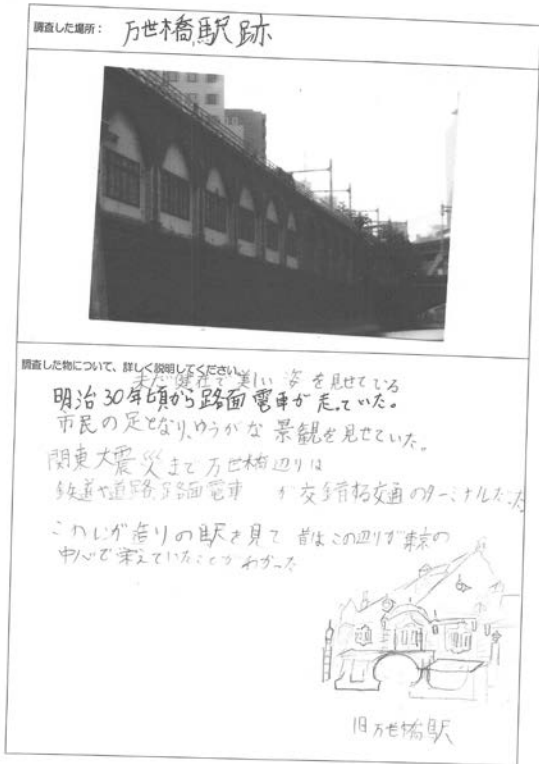 調査した場所： 万世橋駅跡
調査した物について、詳しく説明してください。
まだ健在で美しい姿を見せている
明治30年頃から路面電車が走っていた。
市民の足となり、ゆうがな景観を見せていた。
関東大震災まで万世橋辺りは
鉄道や道路 路面電車 が交錯する交通のターミナルだった
このれんが造りの駅を見て 昔はこの辺りが東京の
中心で栄えていたことがわかった
旧万世橋駅